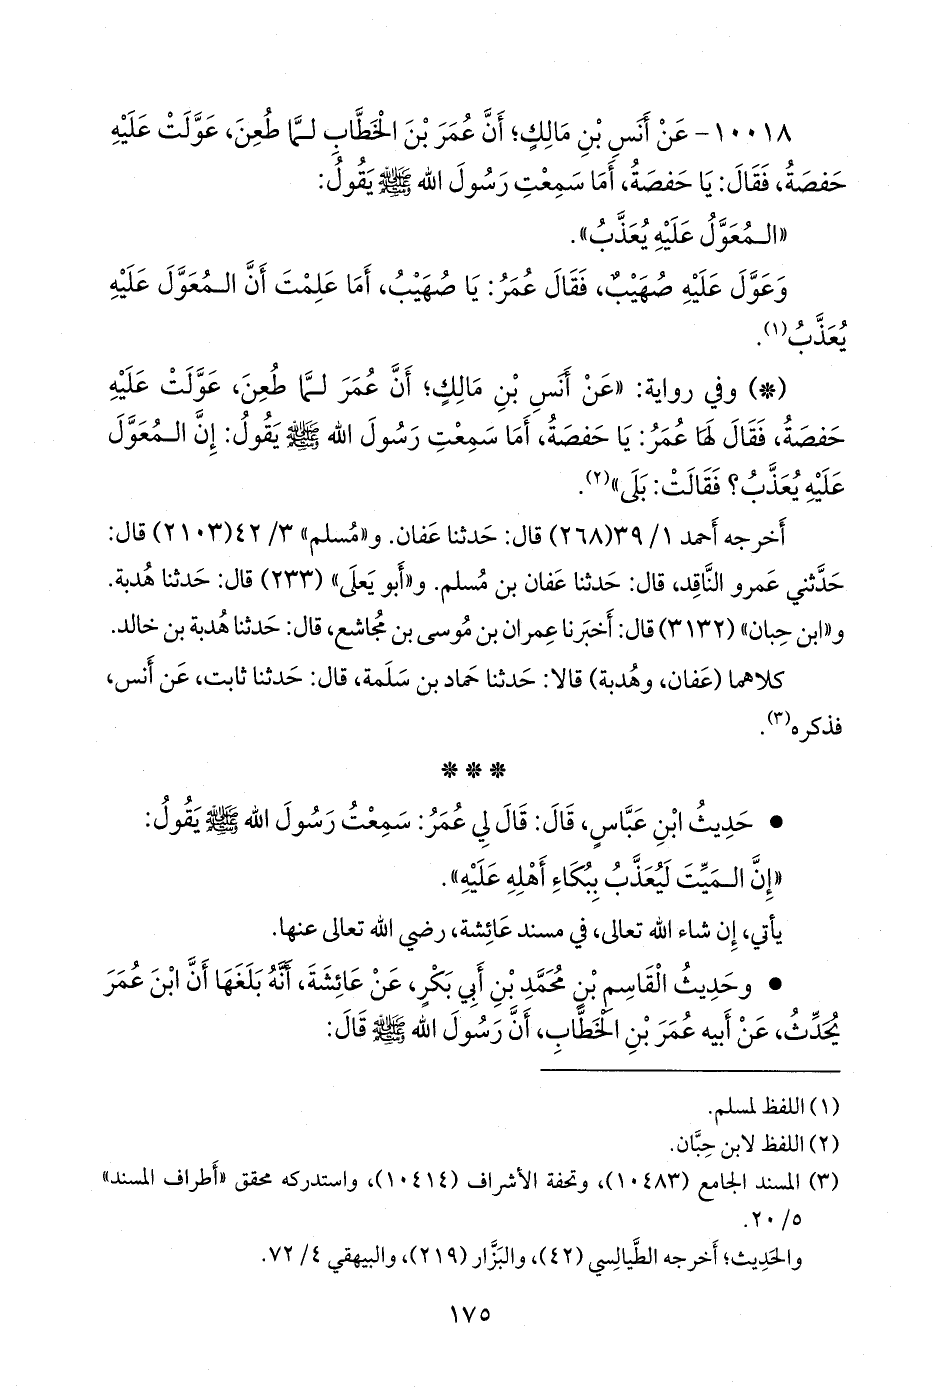 ١٠٠١٨ - عَنْ أَنَسِ بْنِ مَالِكٍ؛ أَنَّ عُمَرَ بْنَ الْخَطَّابِ لَـمَّا طُعِنَ، عَوَّلَتْ عَلَيْهِ
حَفصَةُ، فَقَالَ: يَا حَفصَةُ، أَمَا سَمِعْتِ رَسُولَ الله ﷺ يَقُولُ:
«الـمُعَوَّلُ عَلَيْهِ يُعَذَّبُ».
وَعَوَّلَ عَلَيْهِ صُهَيْبٌ، فَقَالَ عُمَرُ: يَا صُهَيْبُ، أَمَا عَلِمْتَ أَنَّ الـمُعَوَّلَ عَلَيْهِ
يُعَذَّبُ(١).
(*) وفي رواية: «عَنْ أَنَسِ بْنِ مَالِكٍ؛ أَنَّ عُمَرَ لَـمَّا طُعِنَ، عَوَّلَتْ عَلَيْهِ
حَفصَةُ، فَقَالَ لَهَا عُمَرُ: يَا حَفصَةُ، أَمَا سَمِعْتِ رَسُولَ الله ﷺ يَقُولُ: إِنَّ الـمُعَوَّلَ
عَلَيْهِ يُعَذَّبُ؟ فَقَالَتْ: بَلَى»(٢).
أَخرجه أَحمد ١/ ٣٩(٢٦٨) قال: حَدثنا عَفان. و«مُسلم» ٣/ ٤٢(٢١٠٣) قال:
حَدَّثني عَمرو النَّاقِد، قال: حَدثنا عَفان بن مُسلم. و«أَبو يَعلَى» (٢٣٣) قال: حَدثنا هُدبة.
و«ابن حِبان» (٣١٣٢) قال: أَخبَرنا عِمران بن مُوسى بن مُجاشع، قال: حَدثنا هُدبة بن خالد.
كلاهما (عَفان، وهُدبة) قالا: حَدثنا حَماد بن سَلَمة، قال: حَدثنا ثابت، عَن أَنس،
فذكره(٣).
* * *
● حَدِيثُ ابْنِ عَبَّاسٍ، قَالَ: قَالَ لِي عُمَرُ: سَمِعْتُ رَسُولَ الله ﷺ يَقُولُ:
«إِنَّ الـمَيِّتَ لَيُعَذَّبُ بِبُكَاءِ أَهْلِهِ عَلَيْهِ».
يأتي، إِن شاء الله تعالى، في مسند عَائِشة، رضي الله تعالى عنها.
● وحَدِيثُ الْقَاسِمِ بْنِ مُحَمَّدِ بْنِ أَبِي بَكْرٍ، عَنْ عَائِشَةَ، أَنَّهُ بَلَغَهَا أَنَّ ابْنَ عُمَرَ
يُحَدِّثُ، عَنْ أَبيه عُمَرَ بْنِ الْخَطَّابِ، أَنَّ رَسُولَ الله ﷺ قَالَ:
(١) اللفظ لمسلم.
(٢) اللفظ لابن حِبَّان.
(٣) المسند الجامع (١٠٤٨٣)، وتحفة الأشراف (١٠٤١٤)، واستدركه محقق «أَطراف المسند»
٥/ ٢٠.
والحَدِيث؛ أَخرجه الطَّيالِسي (٤٢)، والبَزَّار (٢١٩)، والبيهقي ٤/ ٧٢.
١٧٥